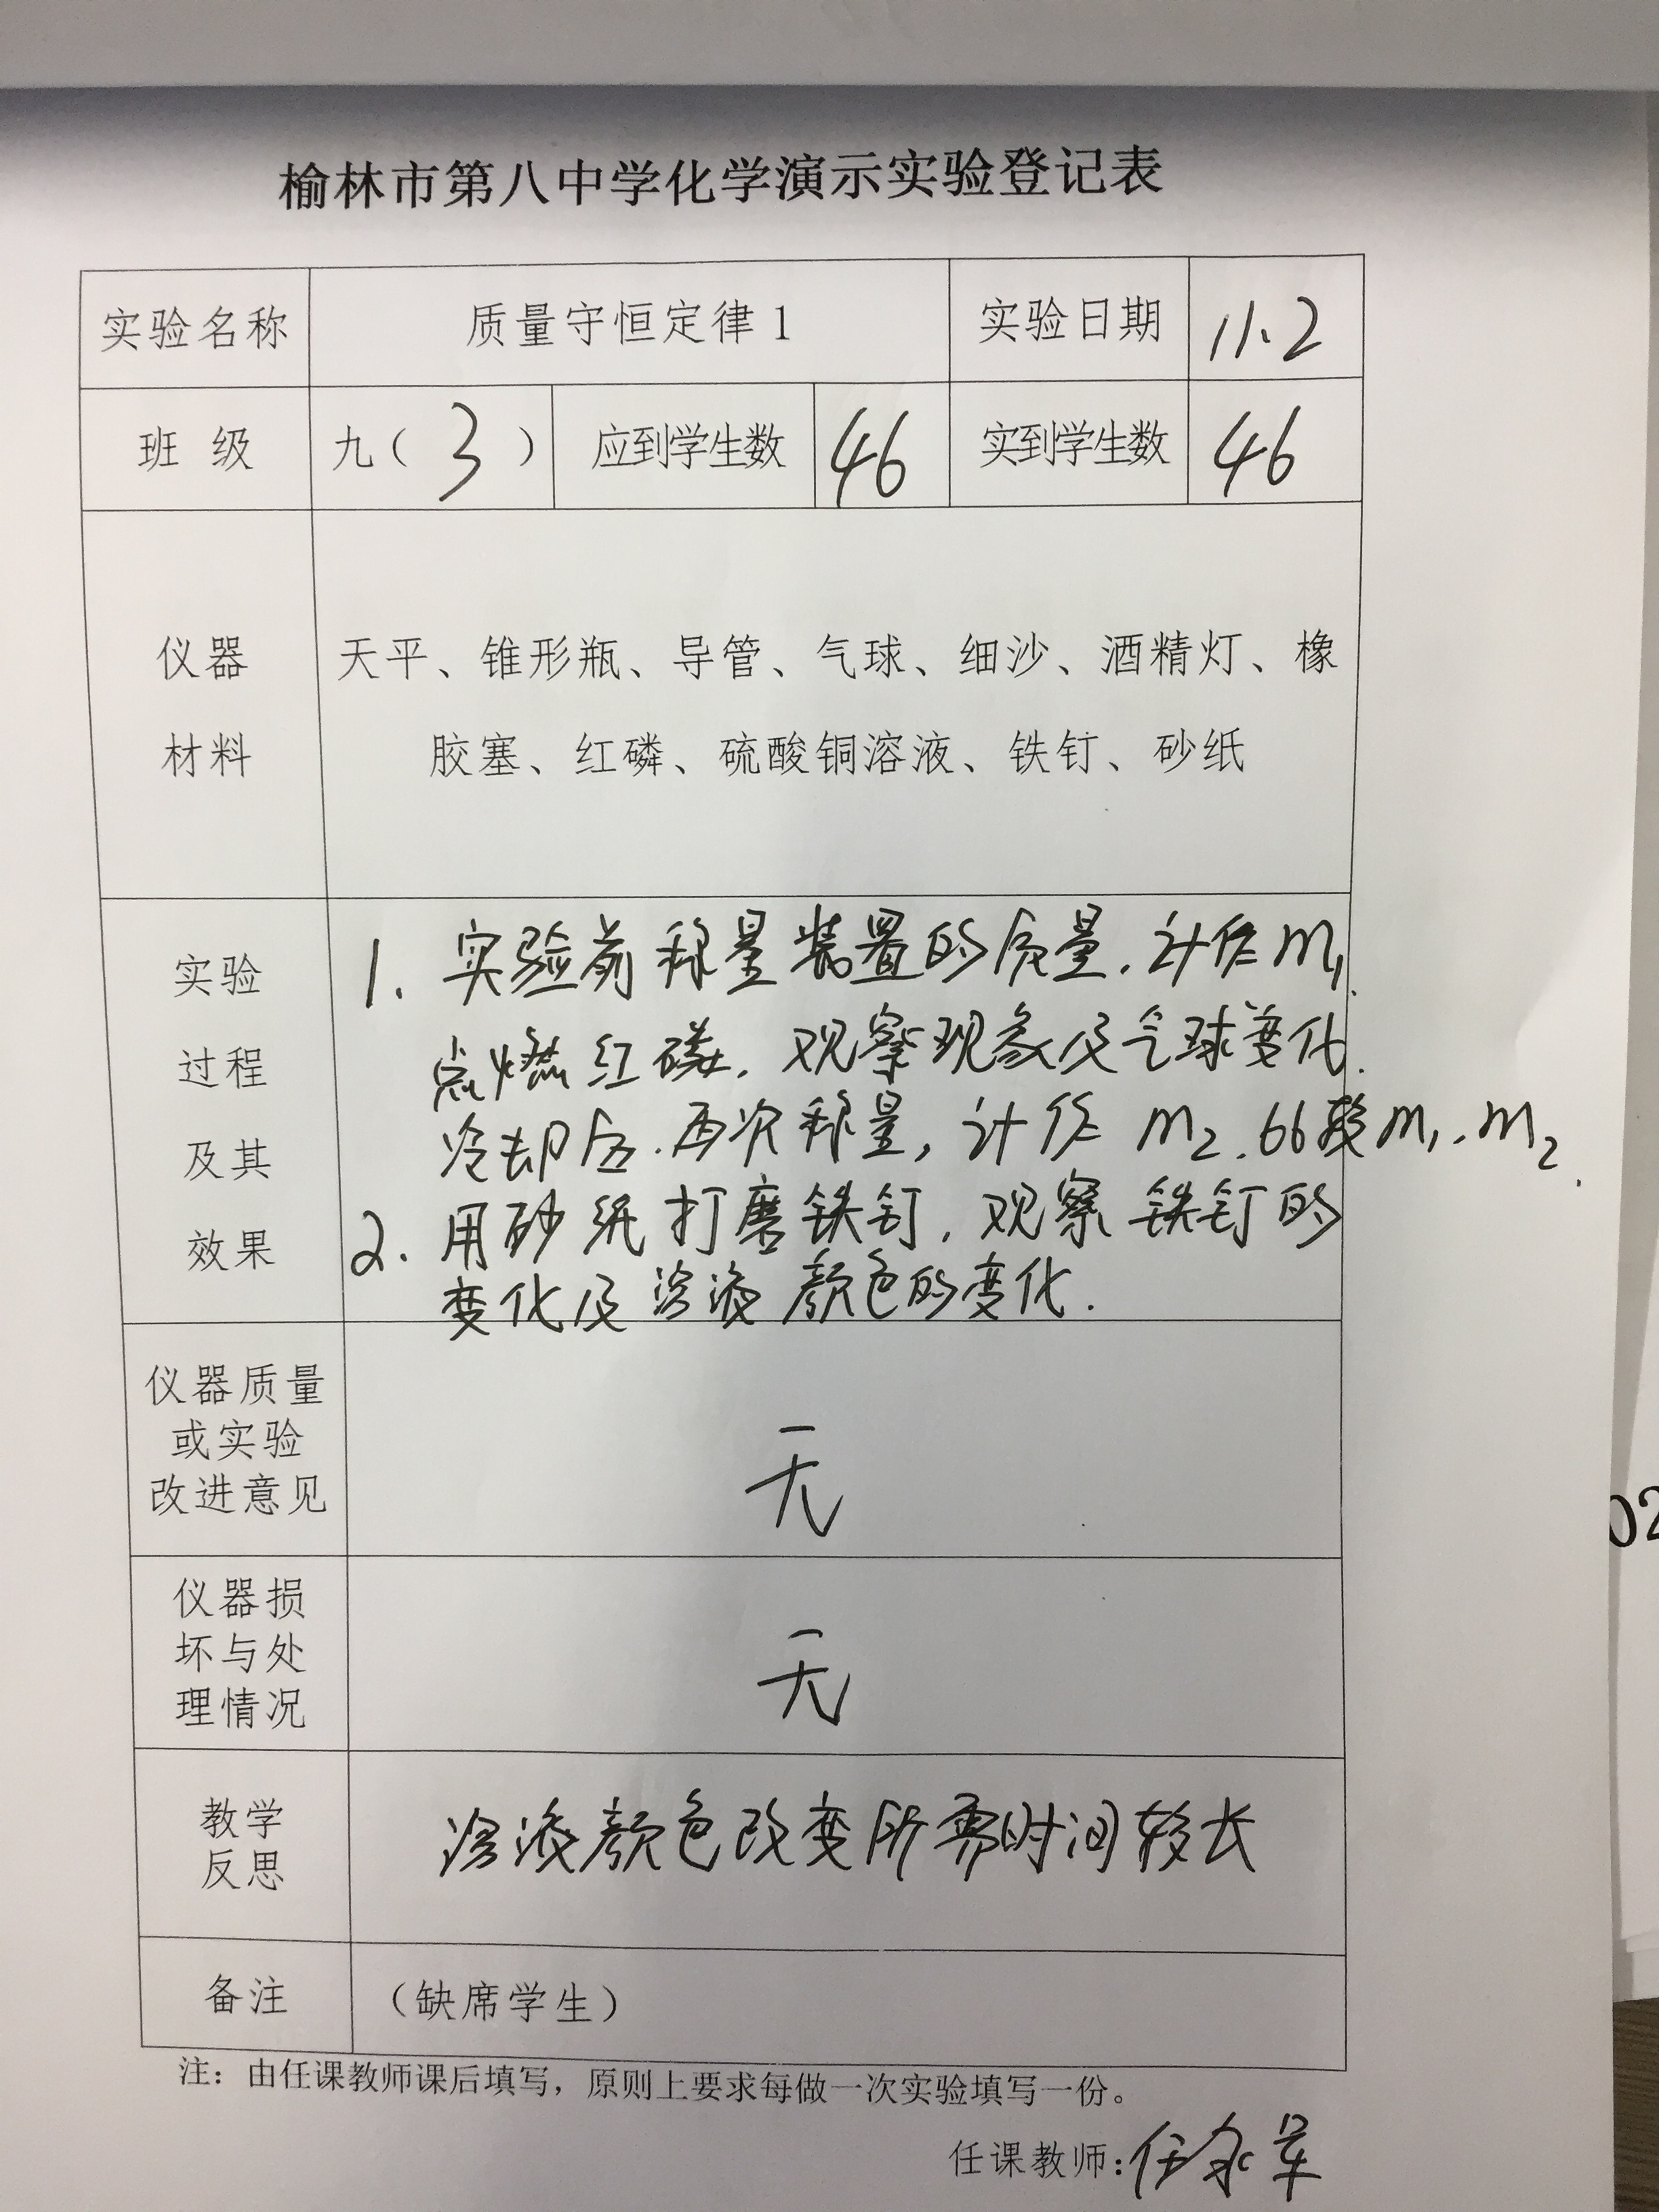 榆林市第八中学化学演示实验登记表
实验名称 质量守恒定律1 实验日期 11.2
班 级 九（3） 应到学生数 46 实到学生数 46
仪器
材料
天平、锥形瓶、导管、气球、细沙、酒精灯、橡
胶塞、红磷、硫酸铜溶液、铁钉、砂纸
实验
过程
及其
效果
1. 实验前称量装置的质量.计作m₁.
点燃红磷.观察现象及气球变化.
冷却后.再次称量,计作 m₂.比较m₁.m₂.
2. 用砂纸打磨铁钉.观察铁钉的
变化及溶液颜色的变化.
仪器质量
或实验
改进意见
无
仪器损
坏与处
理情况
无
教学
反思
溶液颜色改变所需时间较长
备注 （缺席学生）
注：由任课教师课后填写，原则上要求每做一次实验填写一份。
任课教师:任永军
02